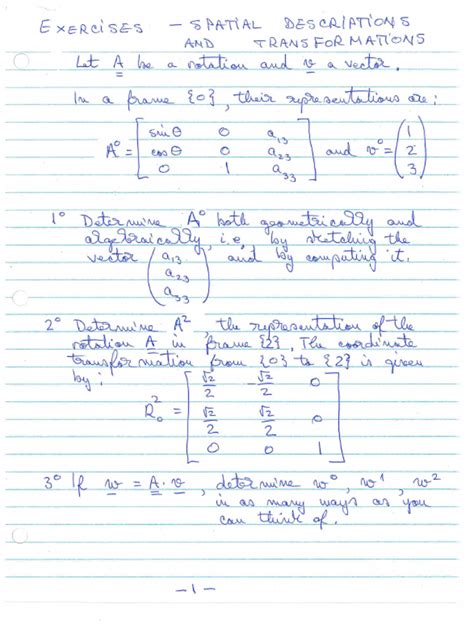 EXERCISES - SPATIAL DESCRIPTIONS
AND TRANSFORMATIONS
Let A be a rotation and v a vector.
In a frame {0}, their representations are:
A⁰ = [ sin θ 0 a₁₃
cos θ 0 a₂₃
0 1 a₃₃ ] and v⁰ = ( 1
2
3 )
1° Determine A⁰ both geometrically and
algebraically, i.e. by sketching the
vector ( a₁₃
a₂₃
a₃₃ ) and by computing it.
2° Determine A², the representation of the
rotation A in frame {2}. The coordinate
transformation from {0} to {2} is given
by:
R₀² = [ √2/2 -√2/2 0
√2/2 √2/2 0
0 0 1 ]
3° If w = A.v, determine w⁰, w¹, w²
in as many ways as you
can think of.
-1-